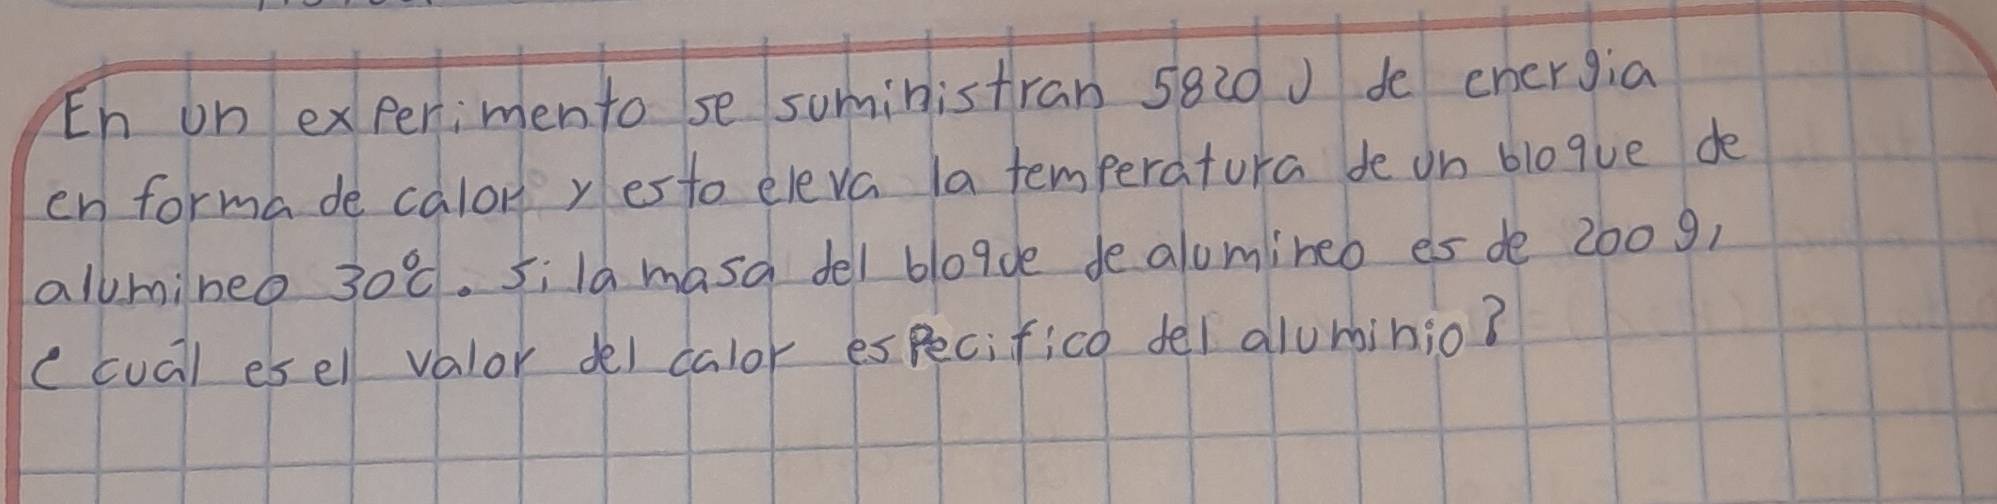 En un experimento se suministran 5820 J de energia
en forma de calor y esto eleva la temperatura de un bloque de
alumineo 30°c. si la masa del bloque de alumineo es de 200 g,
¿ cuál es el valor del calor especifico del aluminio?